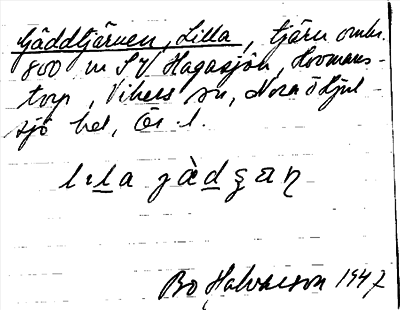 Gäddtjärnen, Lilla, tjärn omkr.
800 m SV Hagasjön, Hromans-
torp, Vikers sn, Nora o Hjul-
sjö bel, Ör. l.
lıla jàdʒan
Bo Halvarson 1947